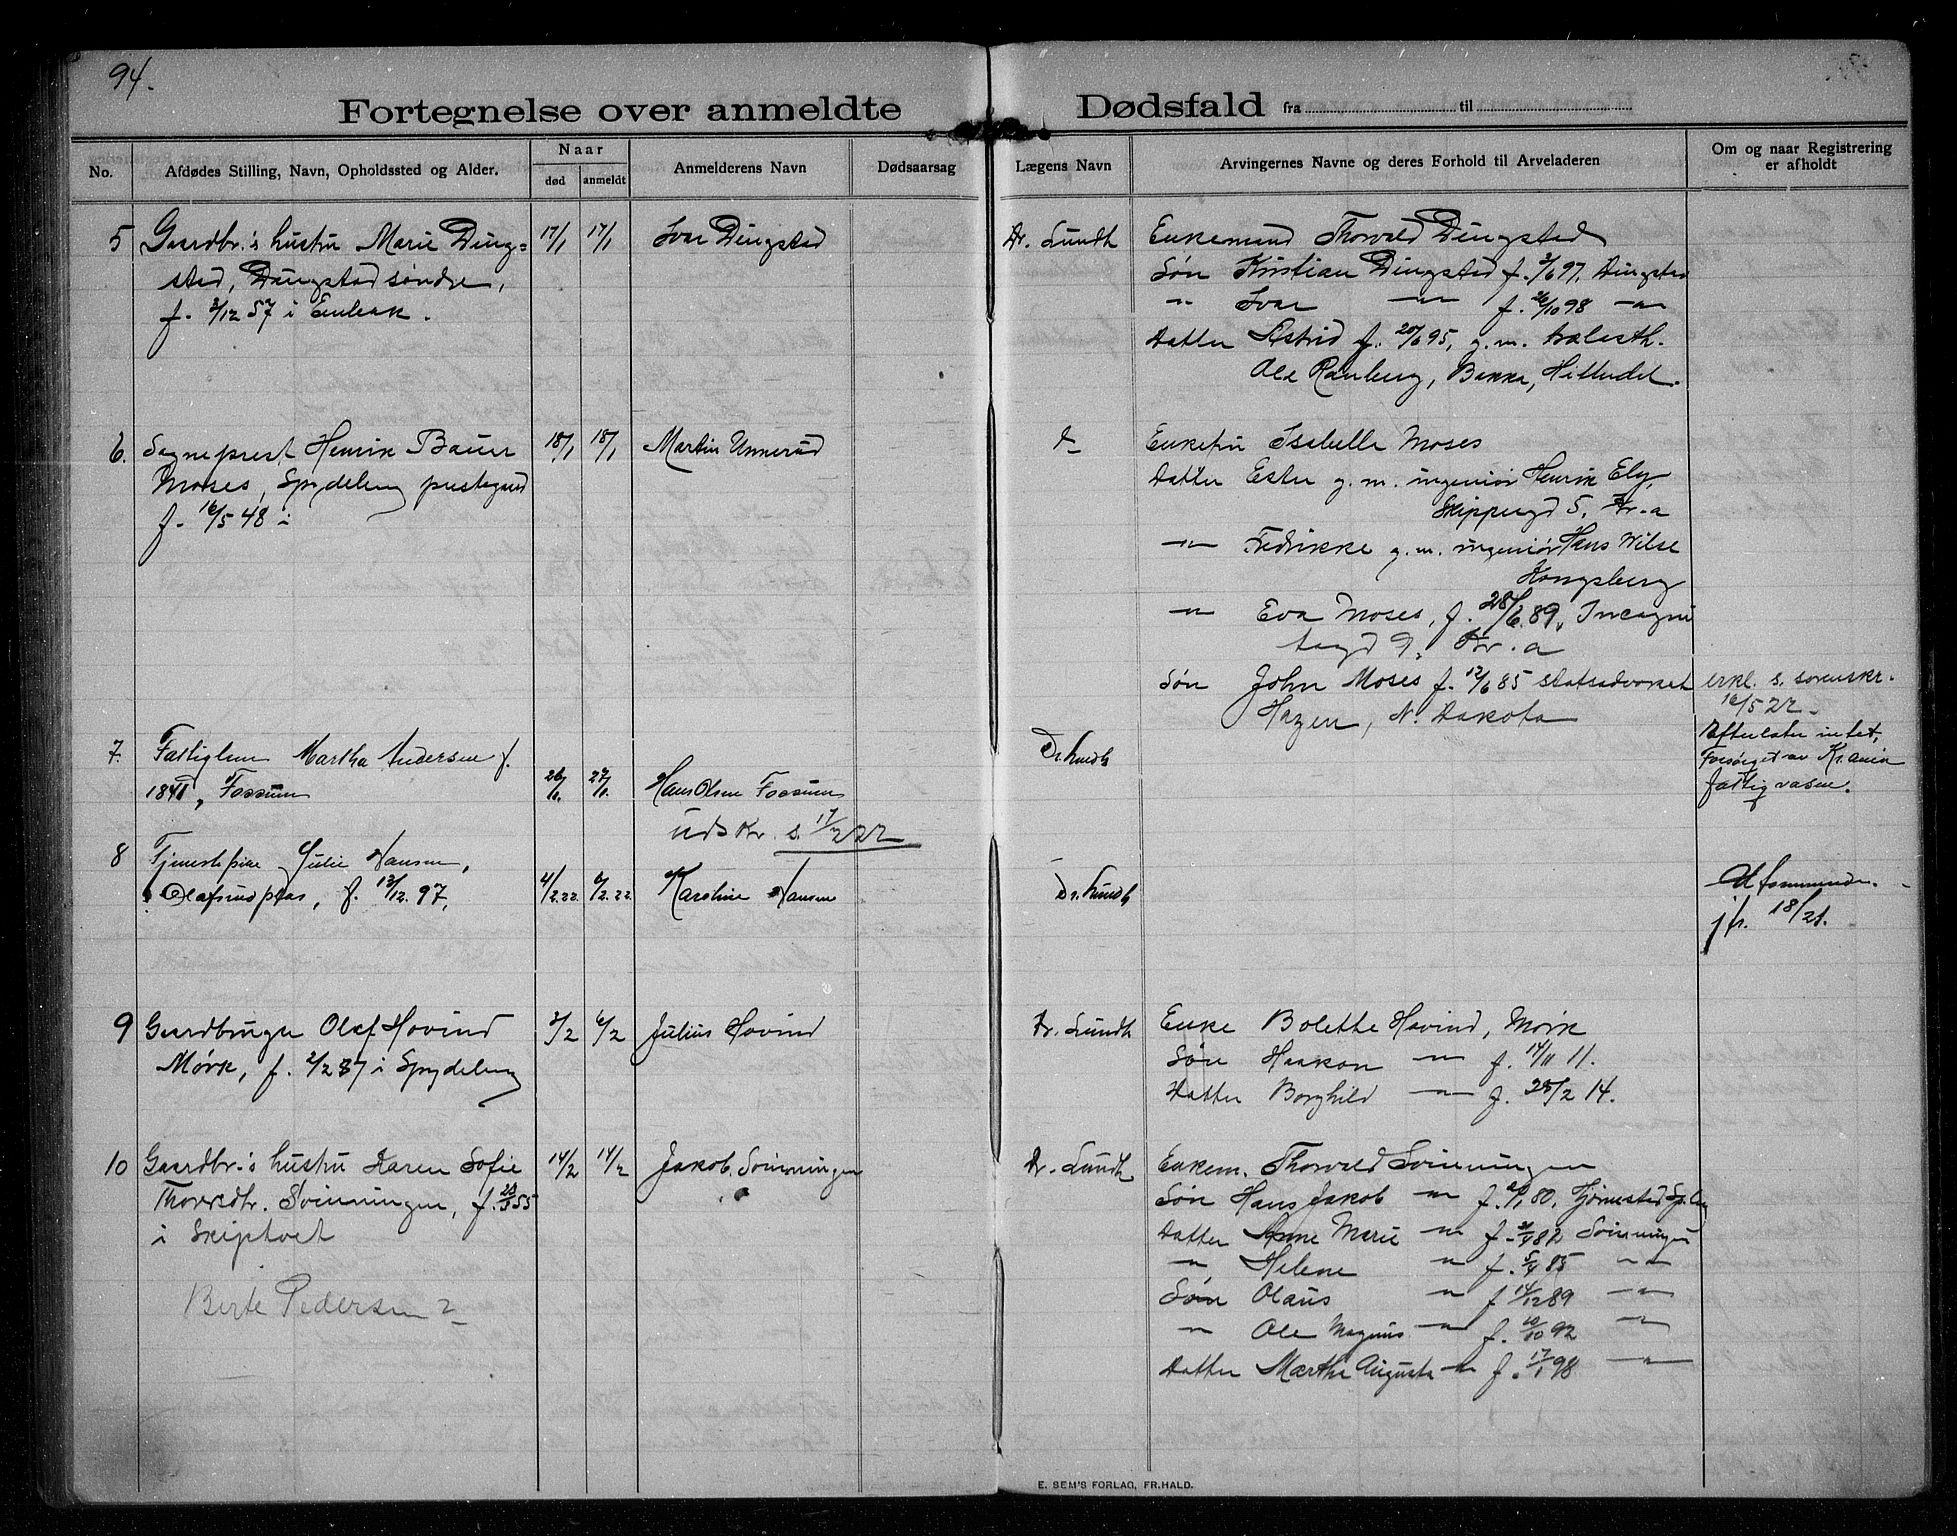 94.
Fortegnelse over anmeldte Dødsfald fra til
No.
Afdødes Stilling, Navn, Opholdssted og Alder.
Naar
død
anmeldt
Anmelderens Navn
Dødsaarsag
Lægens Navn
Arvingernes Navne og deres Forhold til Arveladeren
Om og naar Registrering
er afholdt
5 Gaardbr.'s hustru Marie Ding= 17/1 17/1 Ivar Dingstad Dr. Lundh Enkemand Thorvald Dingstad
stad, Dingstad søndre, Søn Kristian Dingstad f. 3/6 97, Dingstad
f. 3/12 57 i Enebak. " Ivar — " — f. 26/10 98 — " —
Datter Astrid f. 20/6 95, g.m.
Ole Ramberg, Bakke,
6. Sogneprest Henrik Bauer 18/1 18/1 Martin Unnerud Enkefru Isabella Moses
Moses, Spydeberg prestegaard Datter Ester g.m. ingeniør Henrik
f. 16/5 48 i Skippergd 5, Kr.a
— " — Fredrikke g.m. ingeniør Hans Wilse
Kongsberg
— " — Eva Moses, f. 28/6 89, Incogni
togd 9, Kr.a
Søn John Moses f. 12/6 85 statsadvokat erkl. s. sorenskr.
Hazen, N. Dakota 16/5 22
7. Fattiglem Martha Andersen f. Dr. Lundh Efterlater intet,
1841, Fossum 26/1 27/1 Hans Olsen Fossum Forsørget av Kr.ania
fattigvæsen.
udskr. s. 17/2 22
8 Tjenestepike Julie Hansen,
Olafsrudplas, f. 13/12 97, 4/2 22 6/2 22 Karoline Hansen Dr. Lundh
jfr. 18/21.
9 Gaardbruger Olaf Hovind 3/2 6/2 Julius Hovind Dr. Lundh Enke Bolette Hovind, Mørk
Mørk, f. 2/2 87 i Spydeberg Søn Haakon — " — f. 14/11 11.
Datter Borghild — " — f. 25/2 14.
10 Gaardbr.'s hustru Karen Sofie 14/2 14/2 Jakob Svinningen Dr. Lundh Enkem. Thorvald Svinningen
Thorvedtr. Svinningen, f. 55 Søn Hans Jakob — " — 80,
i Skiptvet Datter Anne Marie — " — 82 Svinningen
" Helene " f. 5/4 85 — " —
Berte Pedersen Søn Olaus " f. 14/12 89 — " —
— " — Ole Magnus — " — f. 20/10 92 — " —
Datter Marthe Augusta — " — f. 17/1 98 — " —
E. SEM'S FORLAG, FR.HALD.